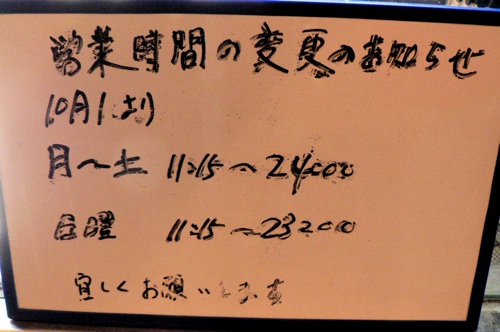 営業時間の変更のお知らせ
10月1日より
月〜土 11:15〜24:00
日曜 11:15〜23:00
宜しくお願いします